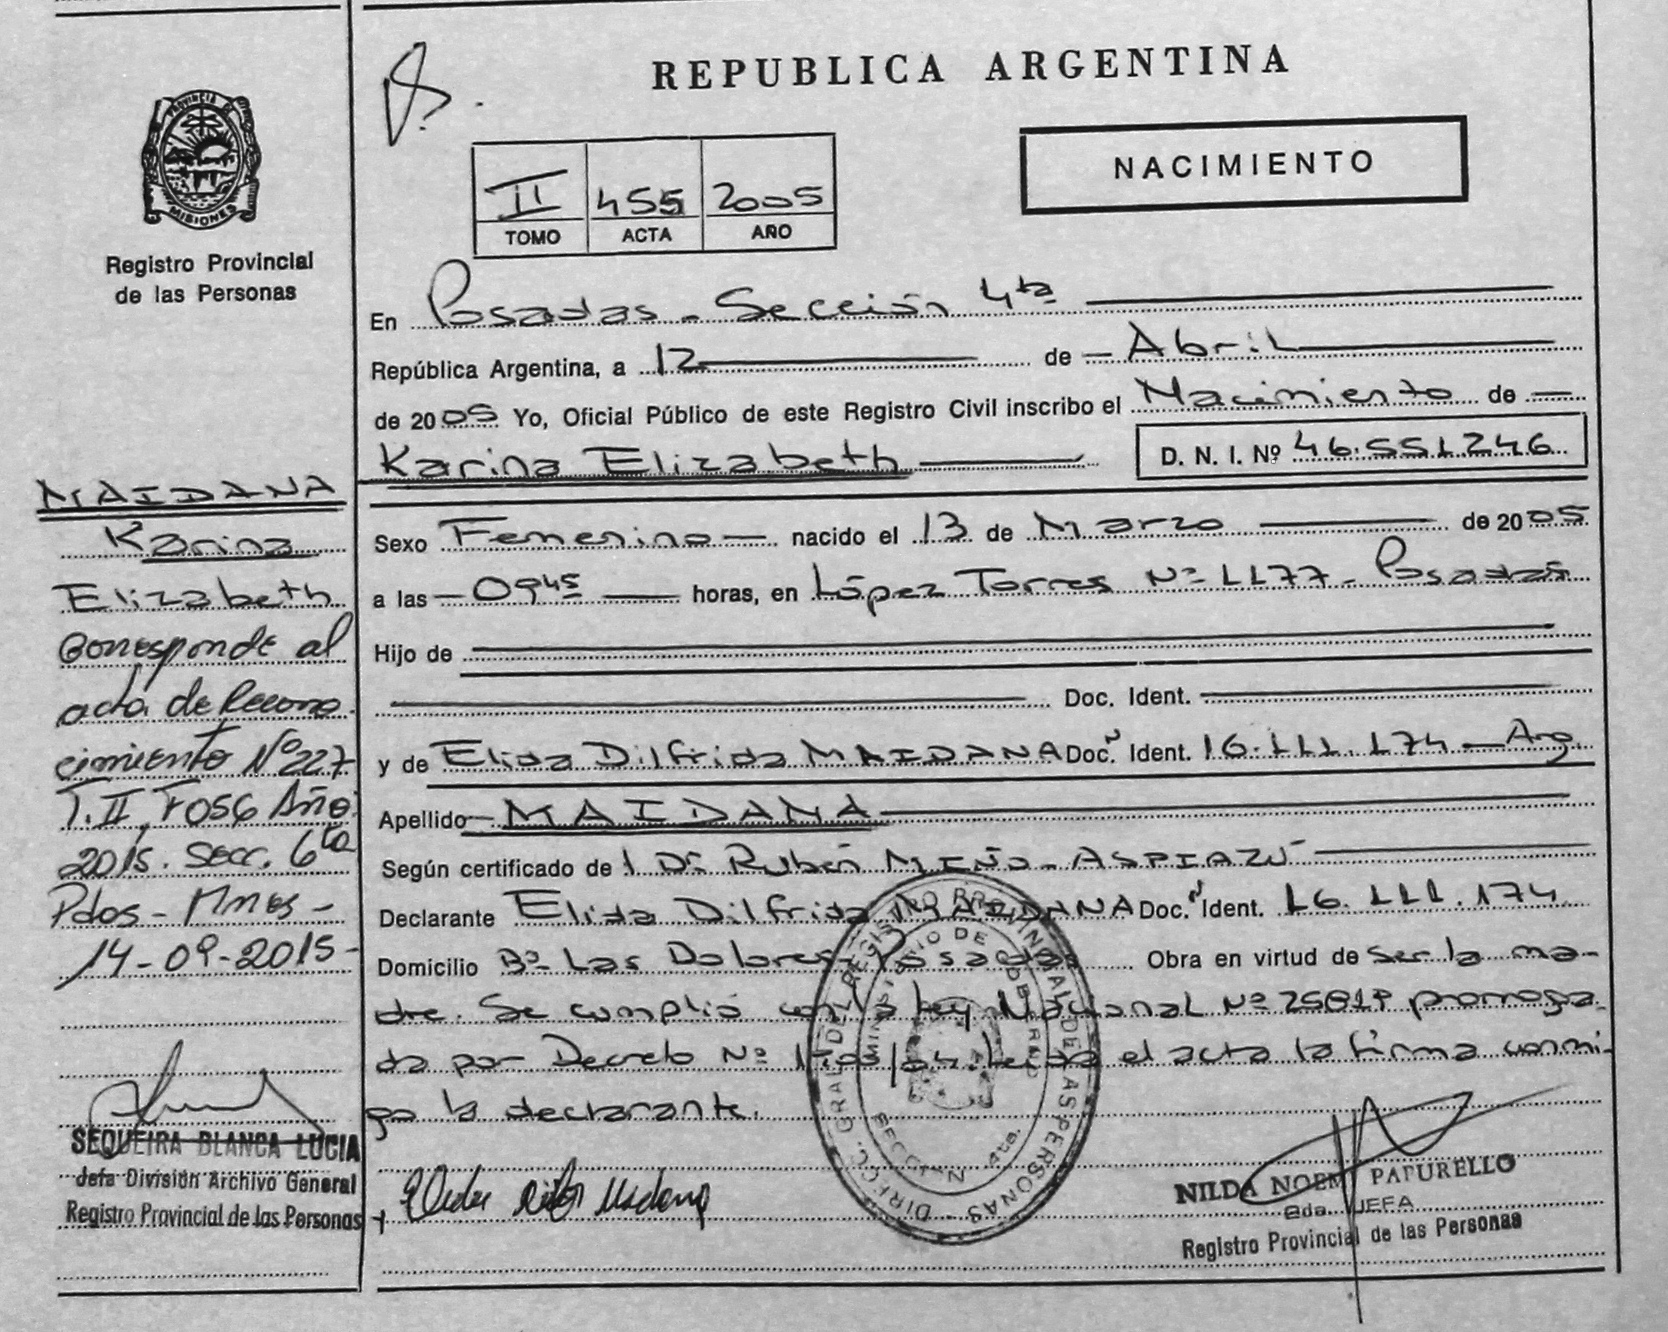 REPUBLICA ARGENTINA
PROVINCIA DE
MISIONES
Registro Provincial
de las Personas
II 455 2005
TOMO ACTA AÑO
NACIMIENTO
En Posadas - Sección 4ta
República Argentina, a 12 de Abril
de 2005 Yo, Oficial Público de este Registro Civil inscribo el Nacimiento de
Karina Elizabeth D. N. I. Nº 46.551.246
Sexo Femenino nacido el 13 de Marzo de 2005
a las 09 45 horas, en López Torres Nº 1177 - Posadas
Hijo de
Doc. Ident.
y de Elida Dilfrida MAIDANA Doc. Ident. 16.111.174 - Arg.
Apellido MAIDANA
Según certificado de Dr. Rubén MIÑO - ASPIAZÚ
Declarante Elida Dilfrida MAIDANA Doc. Ident. 16.111.174
Domicilio Bº Las Dolores - Posadas Obra en virtud de ser la ma-
dre. Se cumplió con la ley Nacional Nº 25819 prorroga
da por Decreto Nº Leída el acta la firma conmi-
go la declarante.
MAIDANA
Karina
Elizabeth
Corresponde al
acta de Recono
cimiento Nº 227
T. II, Fº 056 Año
2015. Secc. 6ta
Pdas - Mnes -
14-09-2015-
SEQUEIRA BLANCA LUCIA
Jefa División Archivo General
Registro Provincial de las Personas
DIRECC. GRAL. DEL REGISTRO PROVINCIAL DE LAS PERSONAS
MINISTERIO DE GOBIERNO
SECCION 4ta.
NILDA NOEMI PAPURELLO
2da. JEFA
Registro Provincial de las Personas